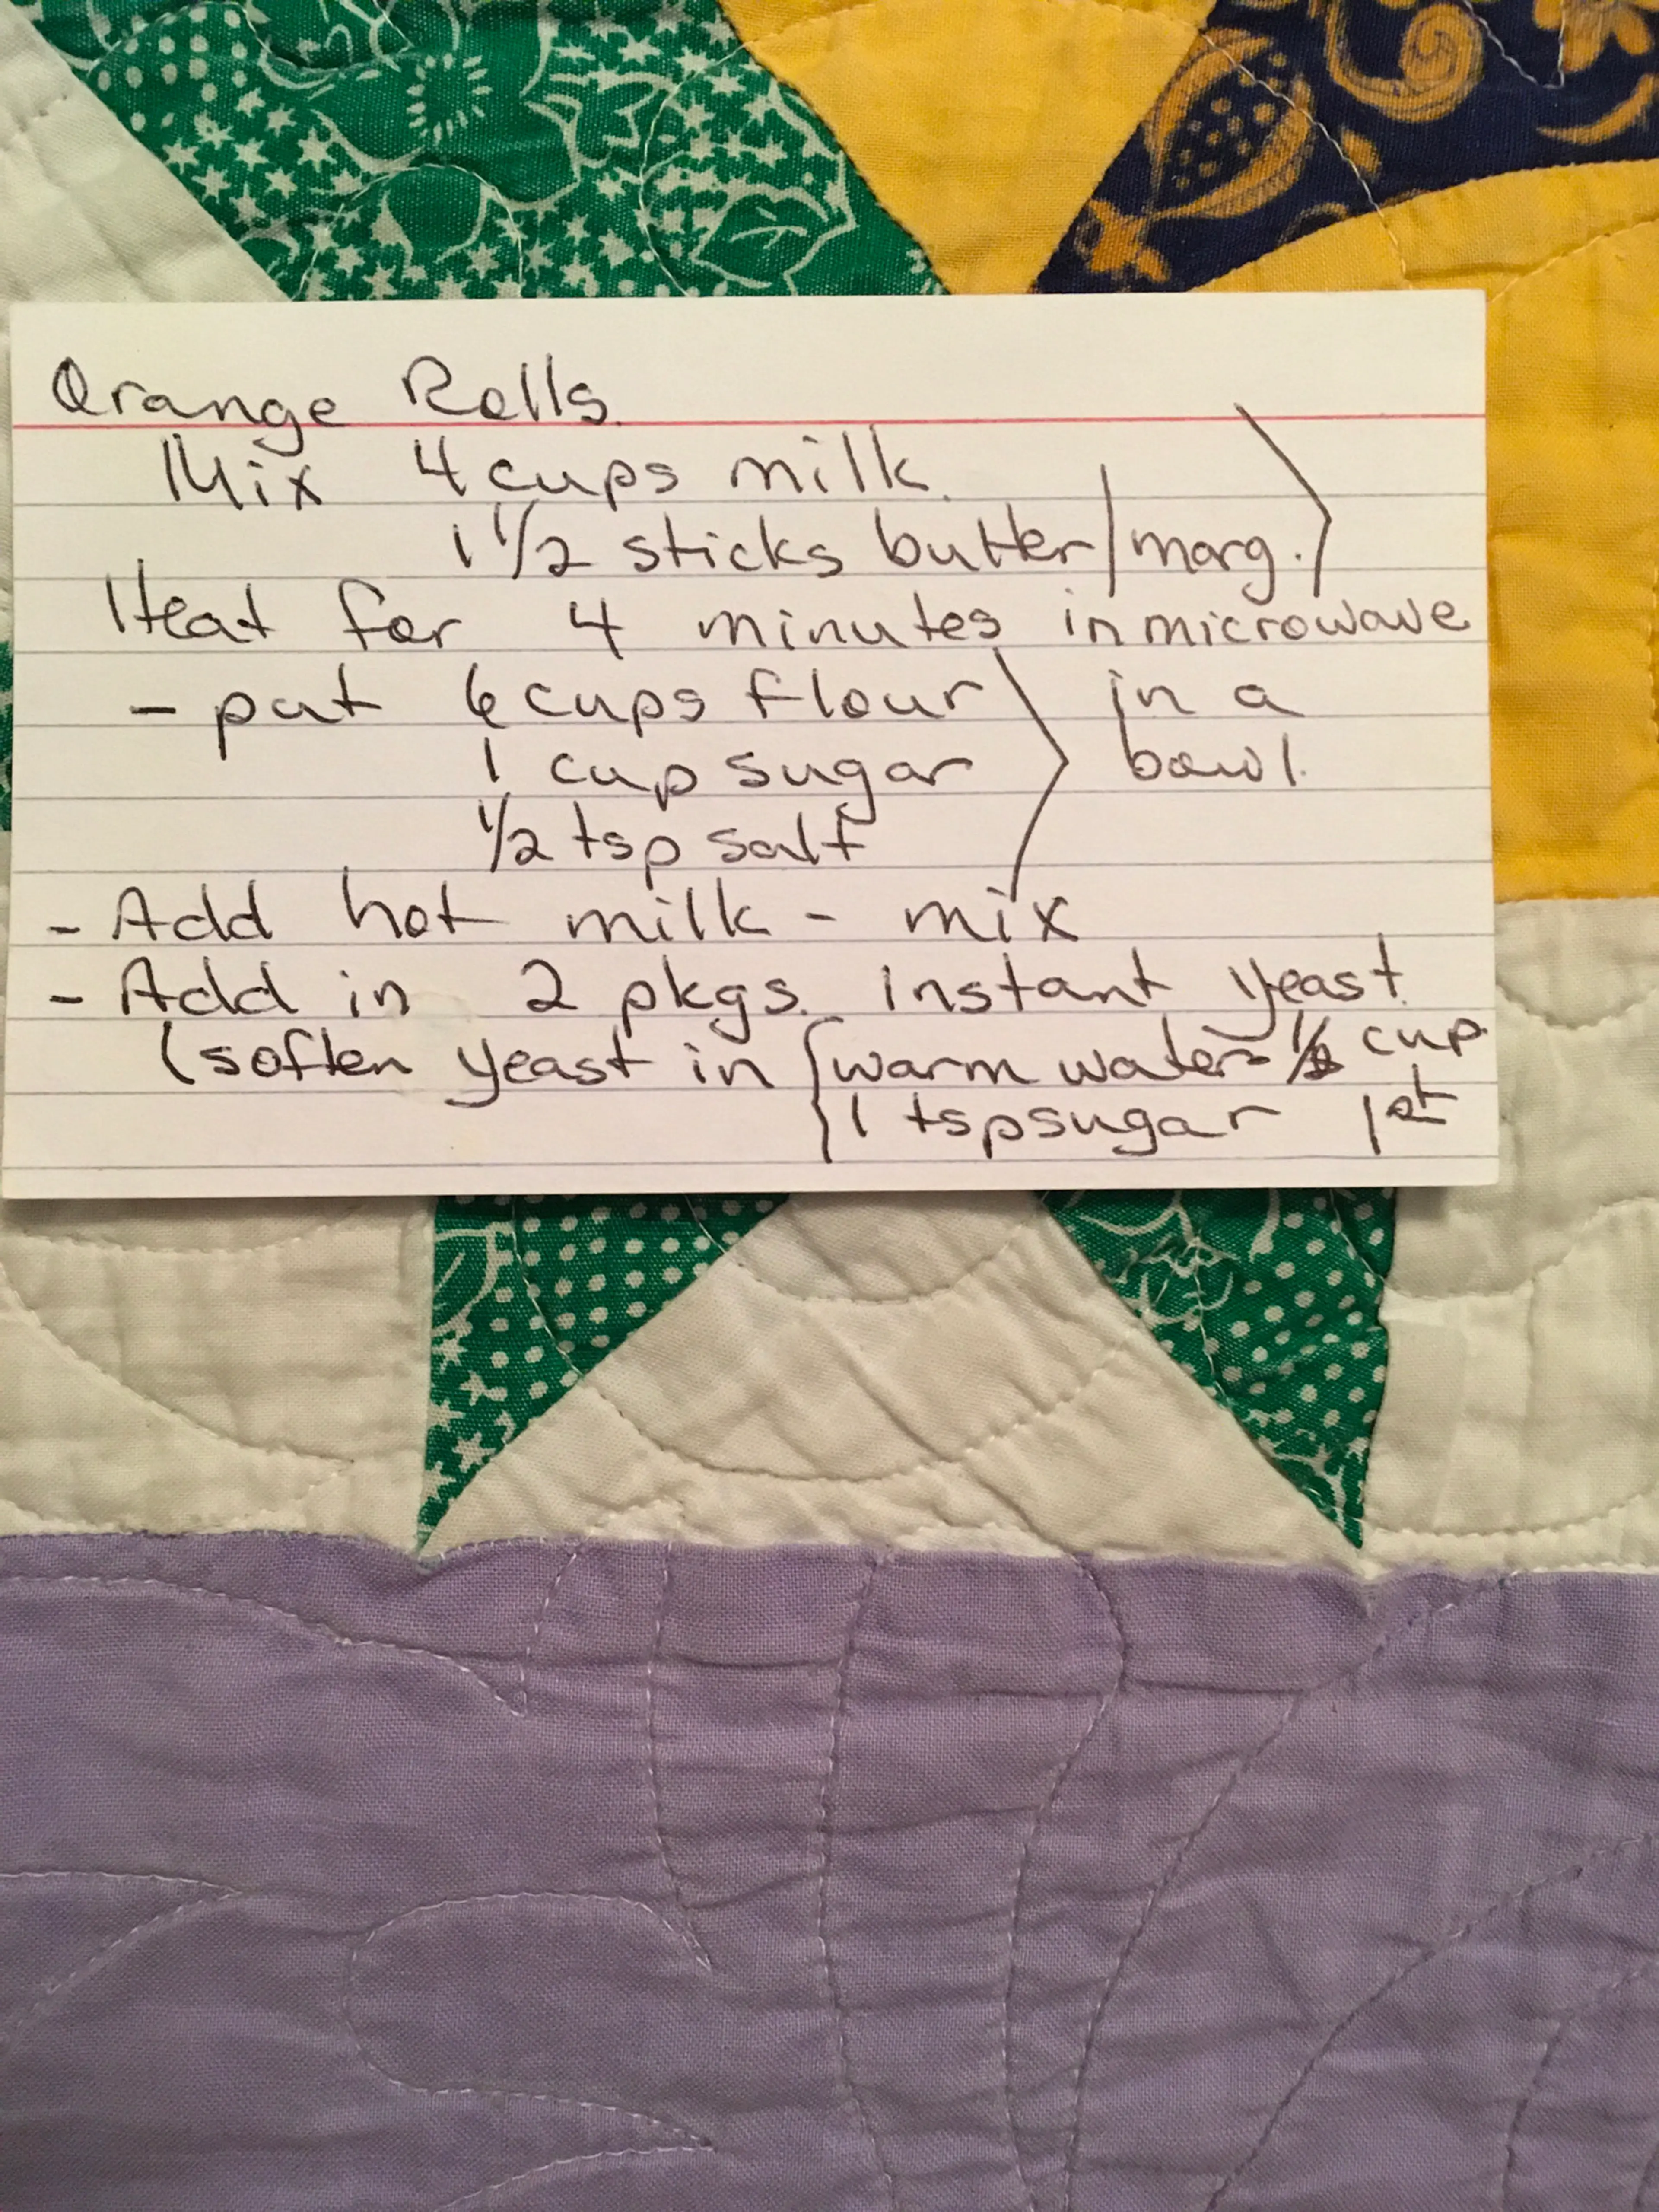 Orange Rolls.
Mix 4 cups milk.
1 1/2 sticks butter/marg.
Heat for 4 minutes in microwave
- put 6 cups flour in a
1 cup sugar bowl.
1/2 tsp salt
- Add hot milk - mix
- Add in 2 pkgs. instant yeast.
(soften yeast in { warm water cup.
1 tsp sugar 1st